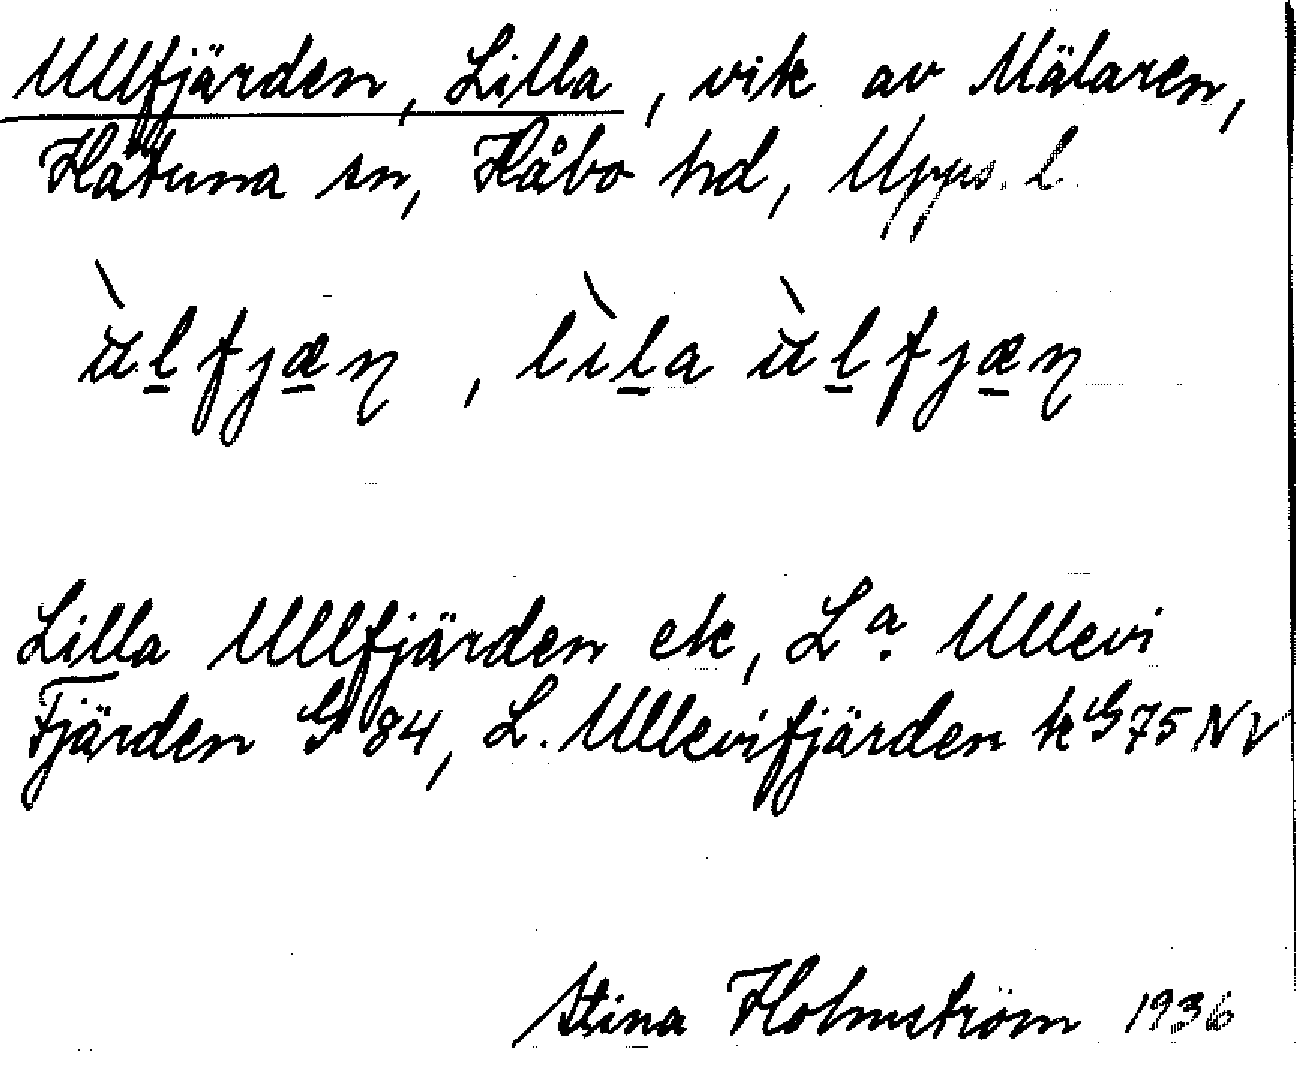 Ullfjärden, Lilla, vik av Mälaren,
Håtuna sn, Håbo hd, Upps. l.
ùl̲fjæ̲ɳ, lìl̲a ùl̲fjæ̲ɳ
Lilla Ullfjärden ek, Lª. Ullevi
Fjärden G 84, L. Ullevifjärden k G 75 NV
Stina Holmström 1936